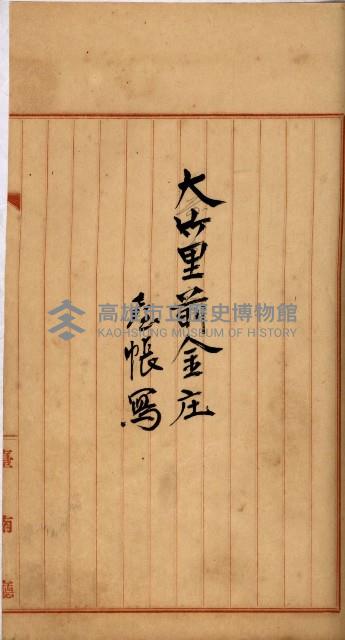 大竹里前金庄
臺帳寫
臺南廳
高雄市立歷史博物館
KAOHSIUNG MUSEUM OF HISTORY